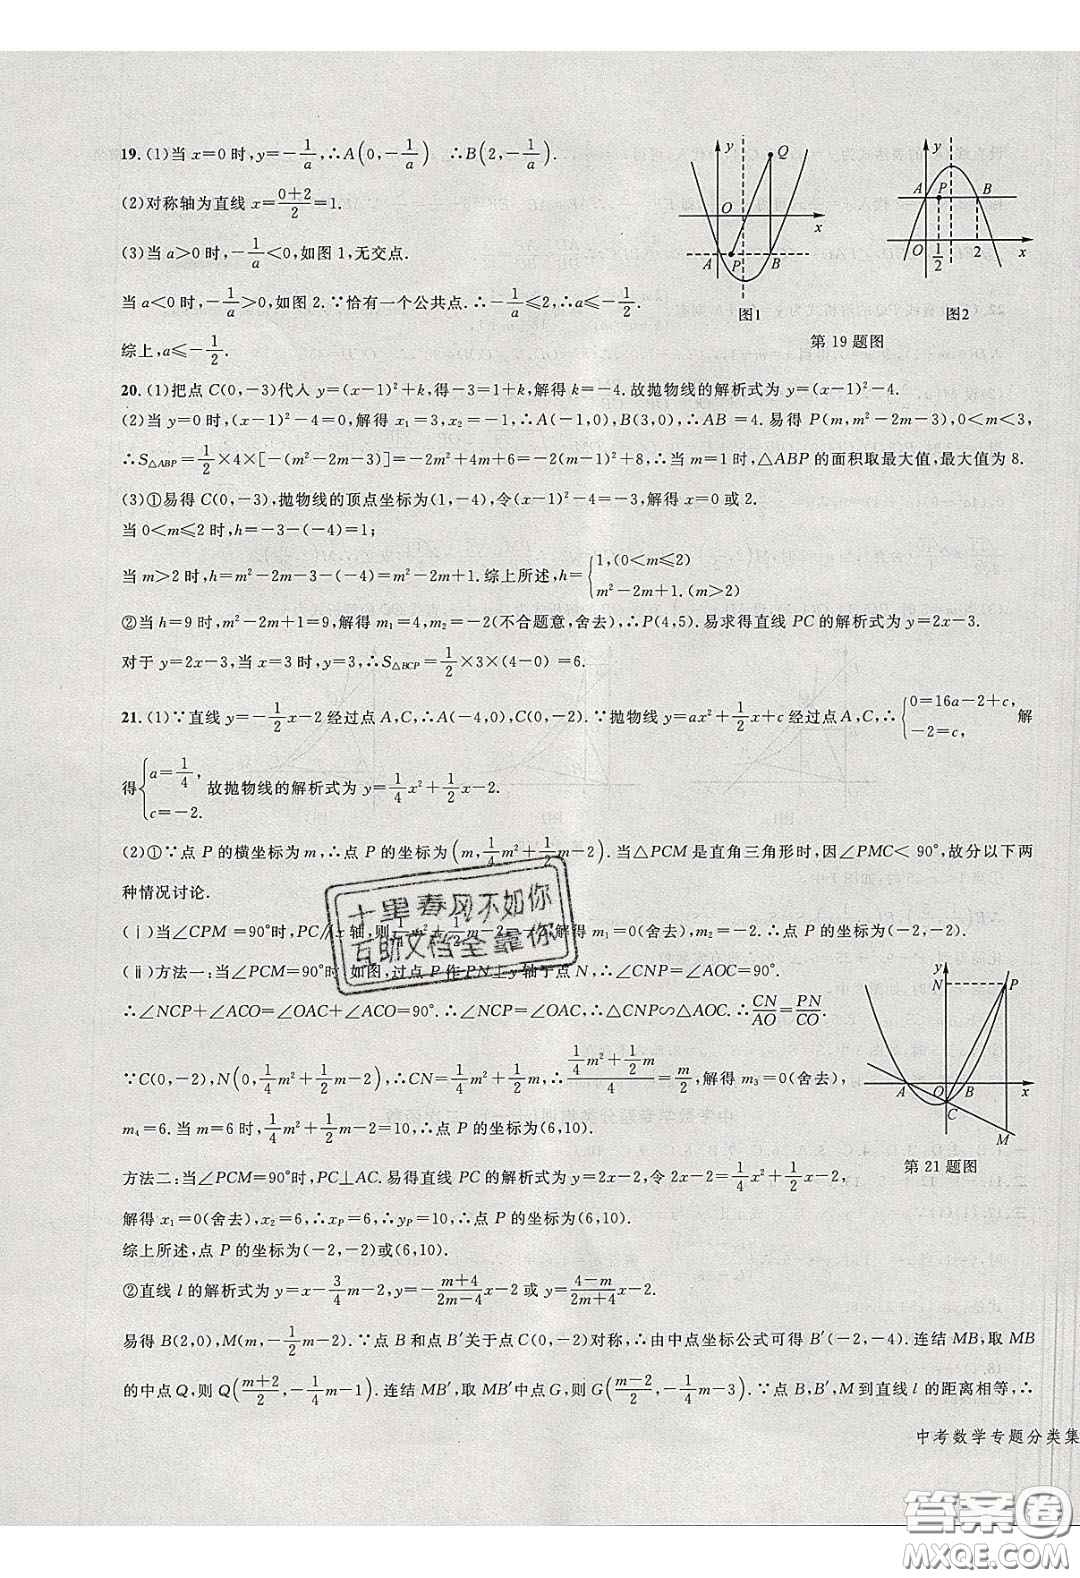 19.(1)当 x=0 时,y=-1/a,∴A(0,-1/a) ∴B(2,-1/a).
(2)对称轴为直线 x=(0+2)/2=1.
(3)当 a>0 时,-1/a<0,如图 1,无交点.
当 a<0 时,-1/a>0,如图 2.∵恰有一个公共点.∴-1/a≤2,∴a≤-1/2.
综上,a≤-1/2.
y Q O x A P B
图1
y A P B O 1/2 2 x
图2
第 19 题图
20.(1)把点 C(0,-3)代人 y=(x-1)²+k,得-3=1+k,解得 k=-4.故抛物线的解析式为 y=(x-1)²-4.
(2)当 y=0 时,(x-1)²-4=0,解得 x₁=3,x₂=-1,∴A(-1,0),B(3,0),∴AB=4.易得 P(m,m²-2m-3),0<m<3,
∴S△ABP=1/2×4×[-(m²-2m-3)]=-2m²+4m+6=-2(m-1)²+8,∴当 m=1 时,△ABP 的面积取最大值,最大值为 8.
(3)①易得 C(0,-3),抛物线的顶点坐标为(1,-4),令(x-1)²-4=-3,解得 x=0 或 2.
当 0<m≤2 时,h=-3-(-4)=1;
当 m>2 时,h=m²-2m-3-(-4)=m²-2m+1.综上所述,h={1,(0<m≤2) m²-2m+1.(m>2)
②当 h=9 时,m²-2m+1=9,解得 m₁=4,m₂=-2(不合题意,舍去),∴P(4,5).易求得直线 PC 的解析式为 y=2x-3.
对于 y=2x-3,当 x=3 时,y=3,∴S△BCP=1/2×3×(4-0)=6.
21.(1)∵直线 y=-1/2x-2 经过点 A,C,∴A(-4,0),C(0,-2).∵抛物线 y=ax²+1/2x+c 经过点 A,C,∴{0=16a-2+c, -2=c, 解
得{a=1/4, c=-2. 故抛物线的解析式为 y=1/4x²+1/2x-2.
(2)①∵点 P 的横坐标为 m,∴点 P 的坐标为(m,1/4m²+1/2m-2).当△PCM 是直角三角形时,因∠PMC<90°,故分以下两
种情况讨论.
(ⅰ)当∠CPM=90°时,PC∥x 轴,则1/4m²+1/2m-2=-2,解得 m₁=0(舍去),m₂=-2.∴点 P 的坐标为(-2,-2).
(ⅱ)方法一:当∠PCM=90°时,如图,过点 P 作 PN⊥y 轴于点 N,∴∠CNP=∠AOC=90°.
∴∠NCP+∠ACO=∠OAC+∠ACO=90°.∴∠NCP=∠OAC,∴△CNP∽△AOC.∴CN/AO=PN/CO.
∵C(0,-2),N(0,1/4m²+1/2m-2),∴CN=1/4m²+1/2m,∴(1/4m²+1/2m)/4=m/2,解得 m₃=0(舍去),
m₄=6.当 m=6 时,1/4m²+1/2m-2=10,∴点 P 的坐标为(6,10).
方法二:当∠PCM=90°时,PC⊥AC.易得直线 PC 的解析式为 y=2x-2,令 2x-2=1/4x²+1/2x-2,
解得 x₁=0(舍去),x₂=6,∴x_P=6,∴y_P=10,∴点 P 的坐标为(6,10).
综上所述,点 P 的坐标为(-2,-2)或(6,10).
y N P A O B x C M
第 21 题图
②直线 l 的解析式为 y=x-3/4m-2,y=-(m+4)/(2m-4)x-2 或 y=(4-m)/(2m+4)x-2.
易得 B(2,0),M(m,-1/2m-2).∵点 B 和点 B′关于点 C(0,-2)对称,∴由中点坐标公式可得 B′(-2,-4).连结 MB,取 MB
的中点 Q,则 Q((m+2)/2,-1/4m-1).连结 MB′,取 MB′中点 G,则 G((m-2)/2,-1/4m-3).∵点 B,B′,M 到直线 l 的距离相等,∴
中考数学专题分类集
十里春风不如你
互助文档全靠你
答案卷
MXQE.COM